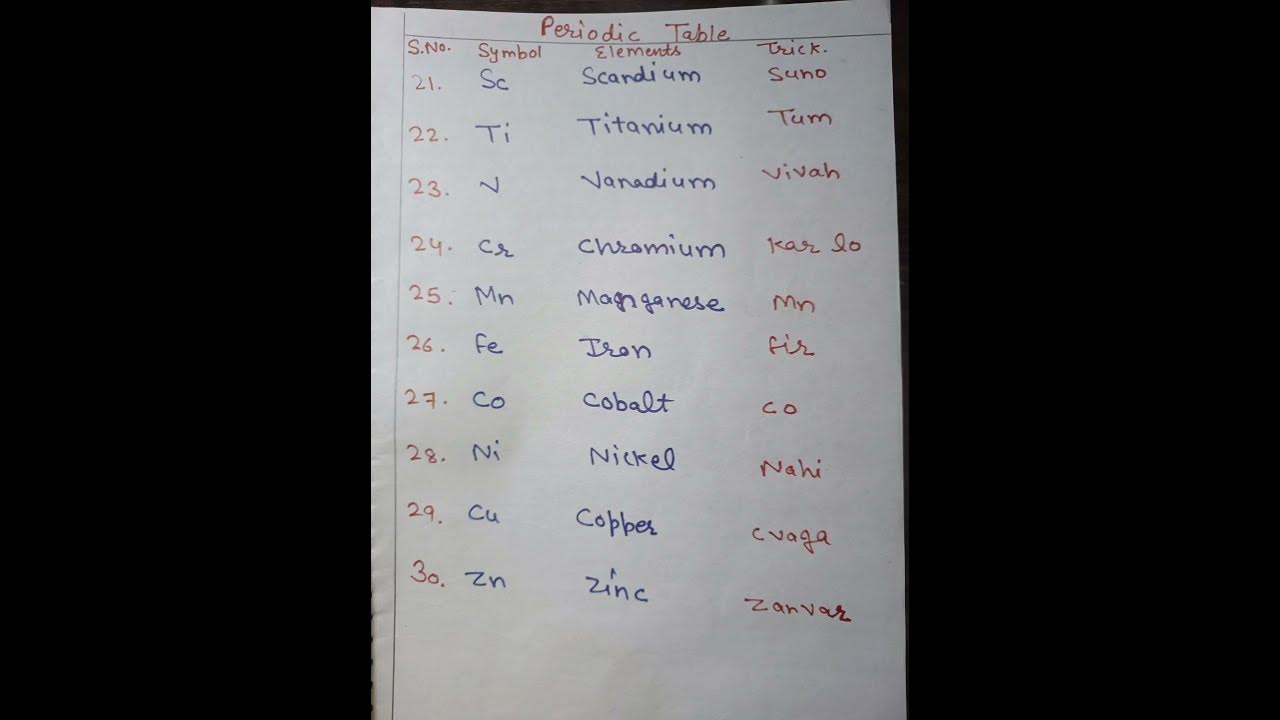 Periodic Table
S.No. Symbol Elements Trick.
21. Sc Scandium Suno
22. Ti Titanium Tum
23. V Vanadium vivah
24. Cr Chromium Kar lo
25. Mn Magnganese Mn
26. Fe Iron fir
27. Co Cobalt co
28. Ni Nickel Nahi
29. Cu Copper cvaga
30. Zn Zinc Zanvar